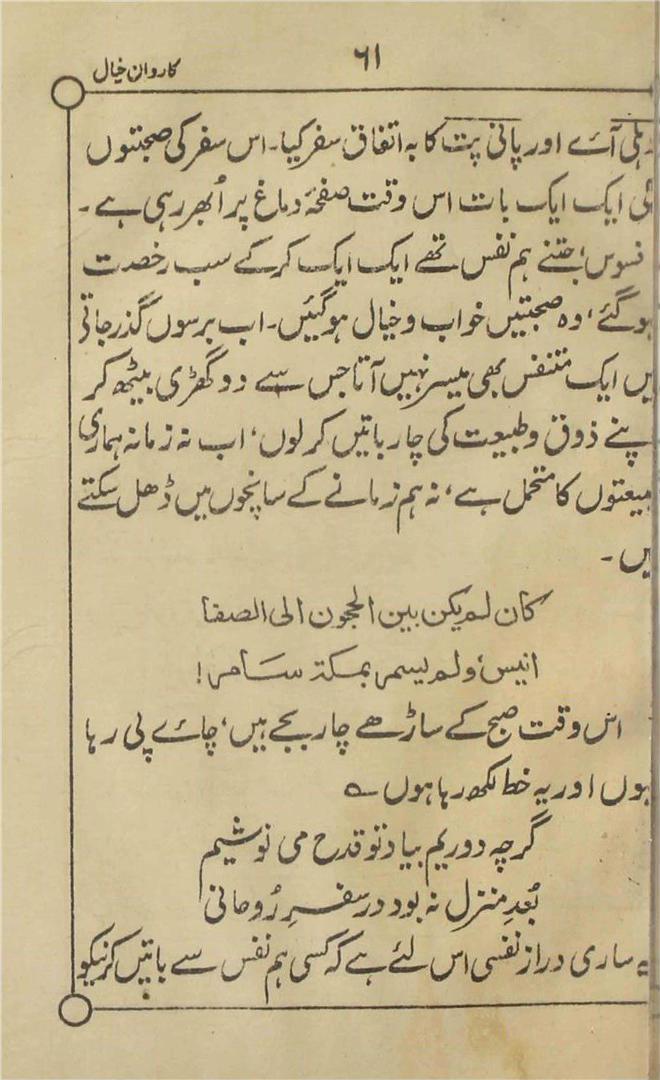 کاروان خیال
٦١
دہلی آئے اور پانی پت کا بہ اتفاق سفر کیا۔ اس سفر کی صحبتوں
کی ایک ایک بات اس وقت صفحۂ دماغ پر اُبھر رہی ہے۔
افسوس، جتنے ہم نفس تھے ایک ایک کرکے سب رخصت
ہوگئے، وہ صحبتیں خواب و خیال ہوگئیں۔ اب برسوں گذر جاتی
ہیں ایک متنفس بھی میسر نہیں آتا جس سے دو گھڑی بیٹھ کر
اپنے ذوق و طبیعت کی چار باتیں کرلوں، اب نہ زمانہ ہماری
طبیعتوں کا متحمل ہے، نہ ہم زمانے کے سانچوں میں ڈھل سکتے
ہیں۔
کان لم یکن بین الحجون الی الصفا
انیس، ولم یسمر بمکۃ سامر!
اس وقت صبح کے ساڑھے چار بجے ہیں، چائے پی رہا
ہوں اور یہ خط لکھ رہا ہوں ؎
گرچہ دوریم بیاد تو قدح می نوشیم
بُعدِ منزل نہ بود در سفرِ رُوحانی
یہ ساری دراز نفسی اس لئے ہے کہ کسی ہم نفس سے باتیں کرنیکو